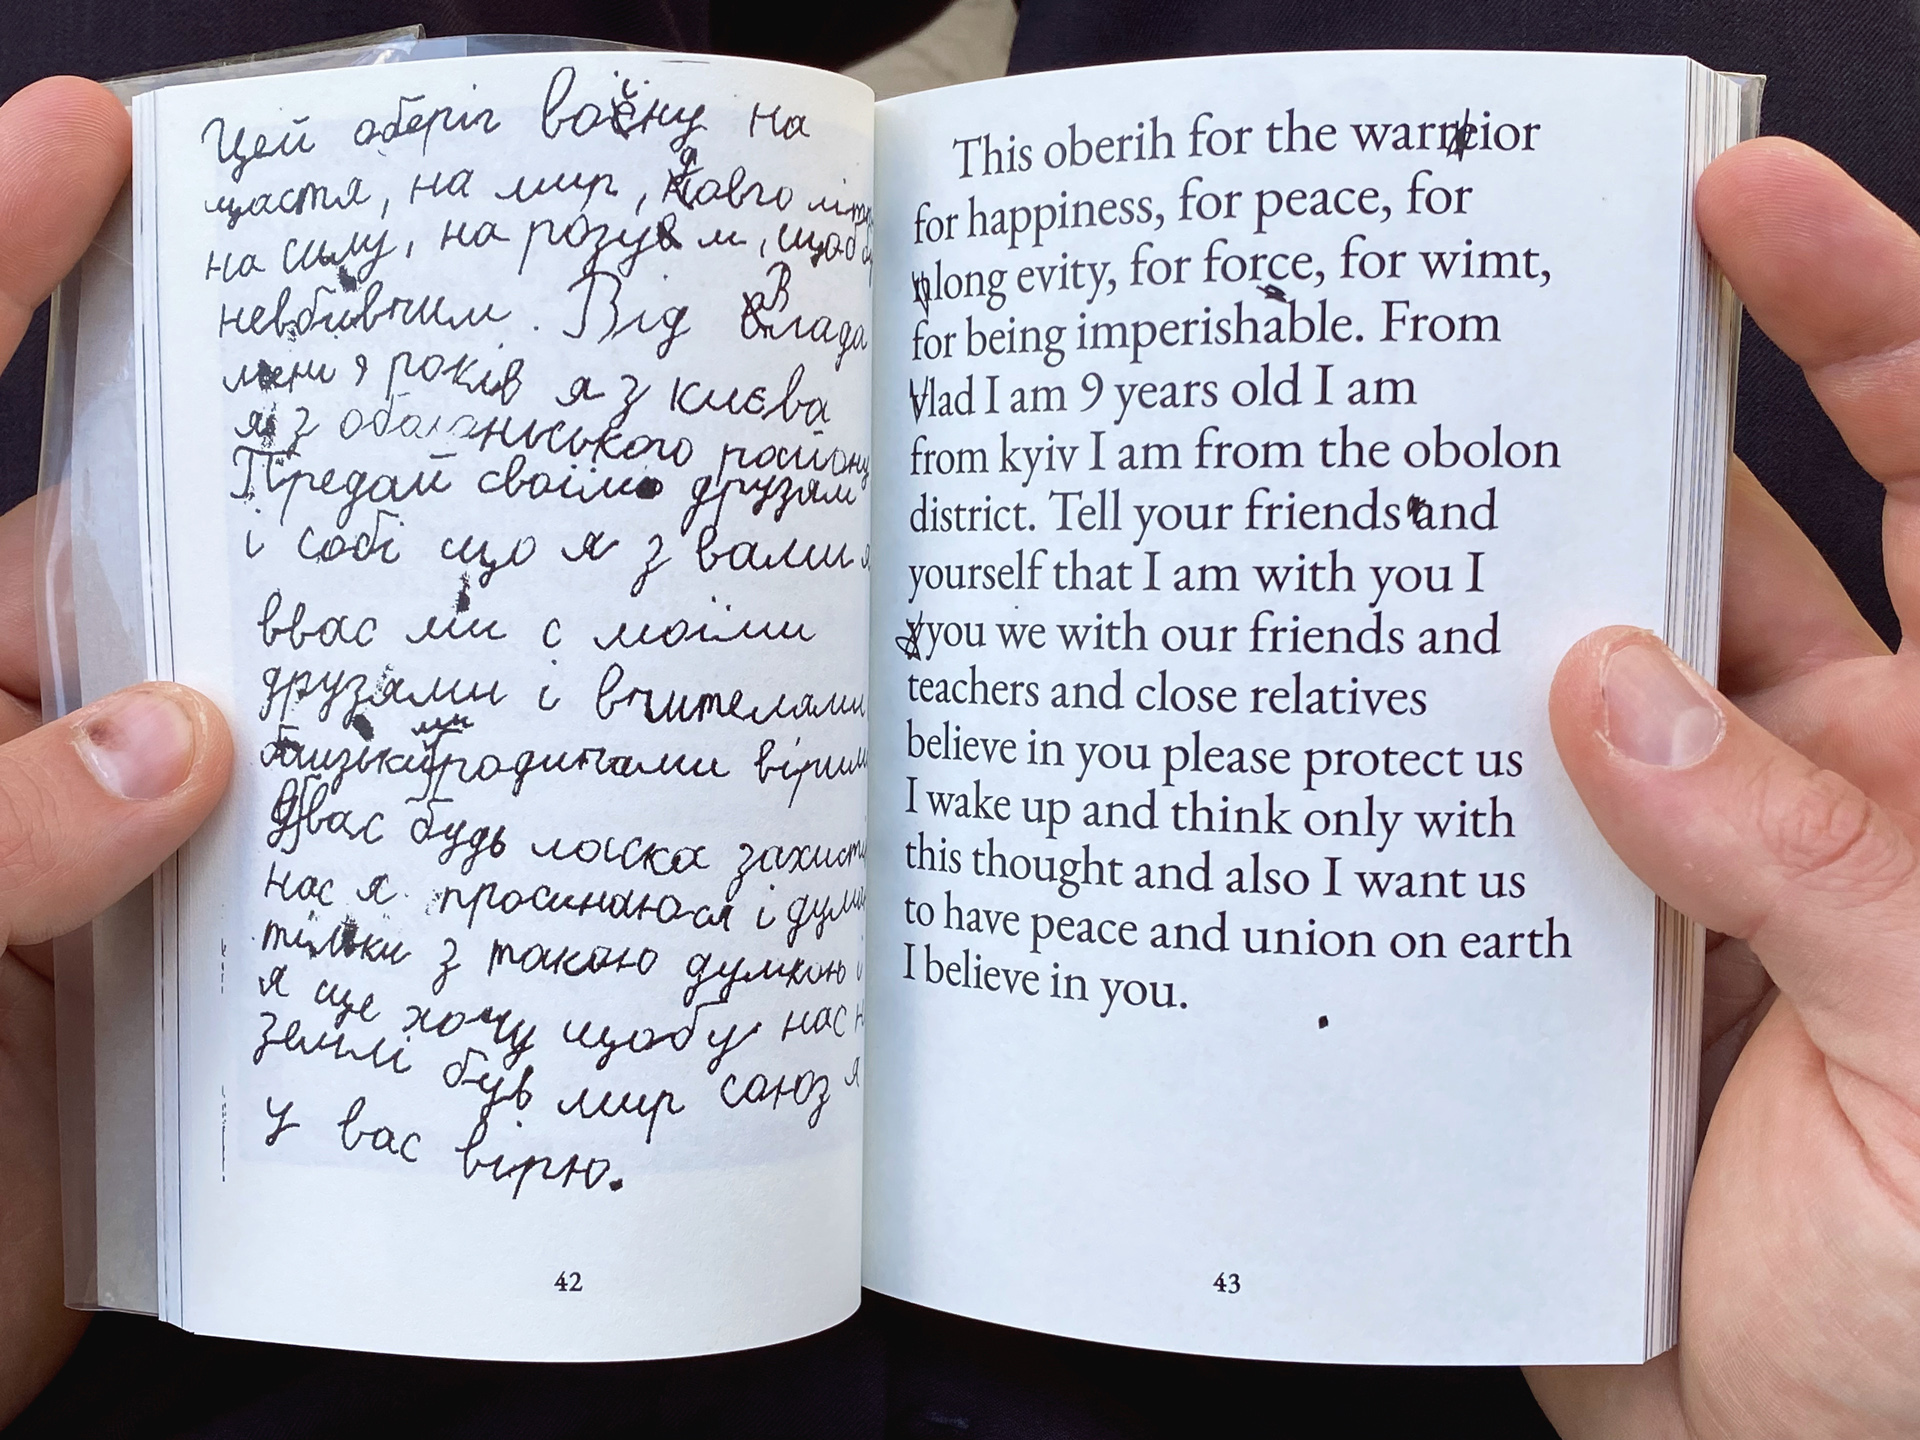 Цей оберіг воїну на
щастя, на мир, довго літ
на силу, на розум, щоб
невбивчим. Від Влада
мені 9 років я з києва
я з оболоньського району
Передай своїм друзям
і собі що я з вами я
ввас ми с моїми
друзями і вчителями
близькими родичами вірим
Двас будь ласка захисті
нас я просинаюся і думаю
тільки з такою думкою і
я ще хочу щобу нас н
землі був мир союз я
у вас вірю.
42
This oberih for the warrior
for happiness, for peace, for
long evity, for force, for wimt,
for being imperishable. From
Vlad I am 9 years old I am
from kyiv I am from the obolon
district. Tell your friends and
yourself that I am with you I
you we with our friends and
teachers and close relatives
believe in you please protect us
I wake up and think only with
this thought and also I want us
to have peace and union on earth
I believe in you.
43